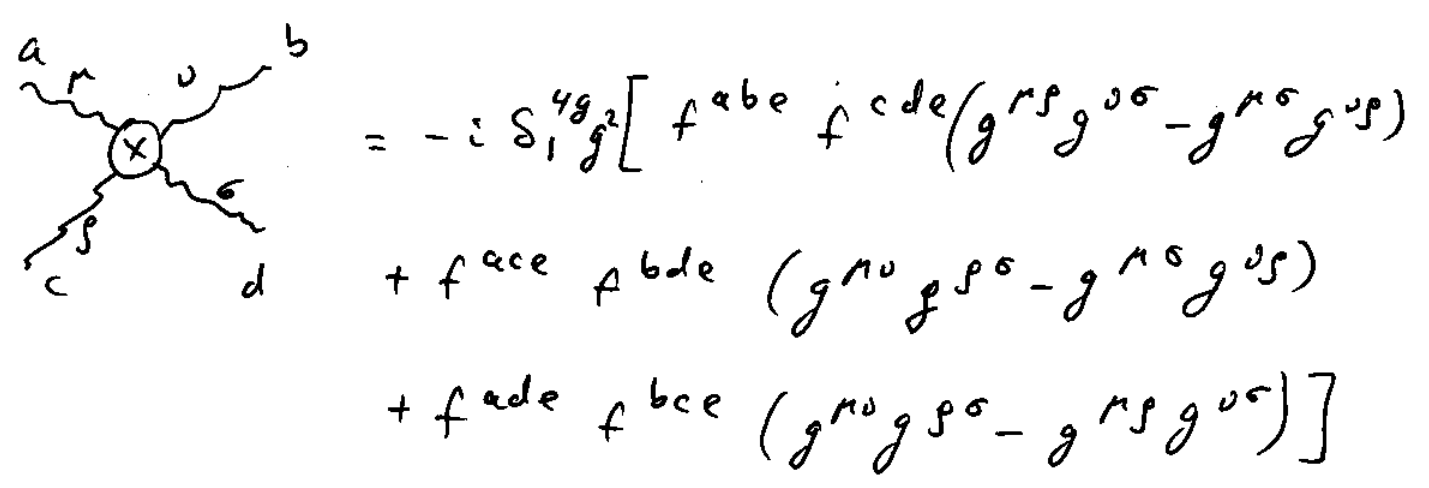 a μ ν b
= -i δ₁^{4g} g² [ f^{abe} f^{cde} (g^{μρ} g^{νσ} - g^{μσ} g^{νρ})
ρ σ
c d
+ f^{ace} f^{bde} (g^{μν} g^{ρσ} - g^{μσ} g^{νρ})
+ f^{ade} f^{bce} (g^{μν} g^{ρσ} - g^{μρ} g^{νσ}) ]